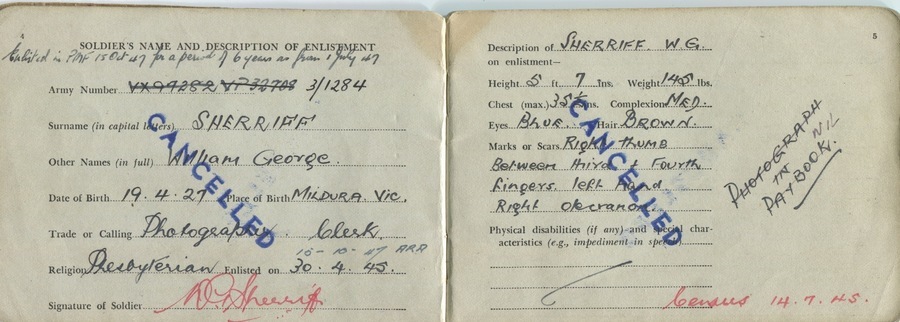 4
SOLDIER'S NAME AND DESCRIPTION OF ENLISTMENT
Enlisted in PMF 15 Oct 47 for a period of 6 years as from 1 July 47
Army Number VX94282 3/1284
Surname (in capital letters) SHERRIFF
Other Names (in full) William George.
Date of Birth 19.4.27 Place of Birth MILDURA VIC.
Trade or Calling Photographer. Clerk.
15-10-47 ARA
Religion Presbyterian Enlisted on 30.4.45.
Signature of Soldier W G Sherriff
CANCELLED
5
Description of SHERRIFF W.G.
on enlistment—
Height 5 ft. 7 Ins. Weight 145 lbs.
Chest (max.) 35½ ins. Complexion MED.
Eyes BLUE. Hair BROWN.
Marks or Scars Right thumb
Between third & Fourth
fingers left hand
Right
Physical disabilities (if any) and special char-
acteristics (e.g., impediment in speech)
CANCELLED
PHOTOGRAPH NIL
IN
PAYBOOK.
Census 14.7.45.